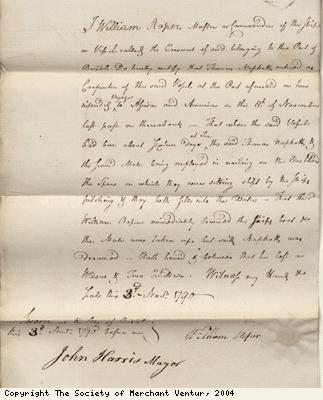 I William Roper Master or Commander of the Ship
or Vessel called the Crescent of and belonging to the Port of
Bristol Do hereby certify that Thomas entered as
Carpenter of the said Vessel at the Port aforesaid on her
intended Voyage to Africa and America on the 8th of November
last past or thereabouts — That when the said Vessel
had been about days at Sea, the said Thomas &
the second Mate being employed in working on the
the Spars on which they were sitting slipt by the Ships
pitching & they both fell into the Water — That the
William Roper immediately the Ships boat &
the Mate was taken up but said was
drowned — That he has left a
Widow & Two Children. Witness my Hand &
Seal this 3d 1790
Sworn Bristol
this 3d 1790 before me
William Roper
John Harris Mayor
Copyright The Society of Merchant Ventur, 2004